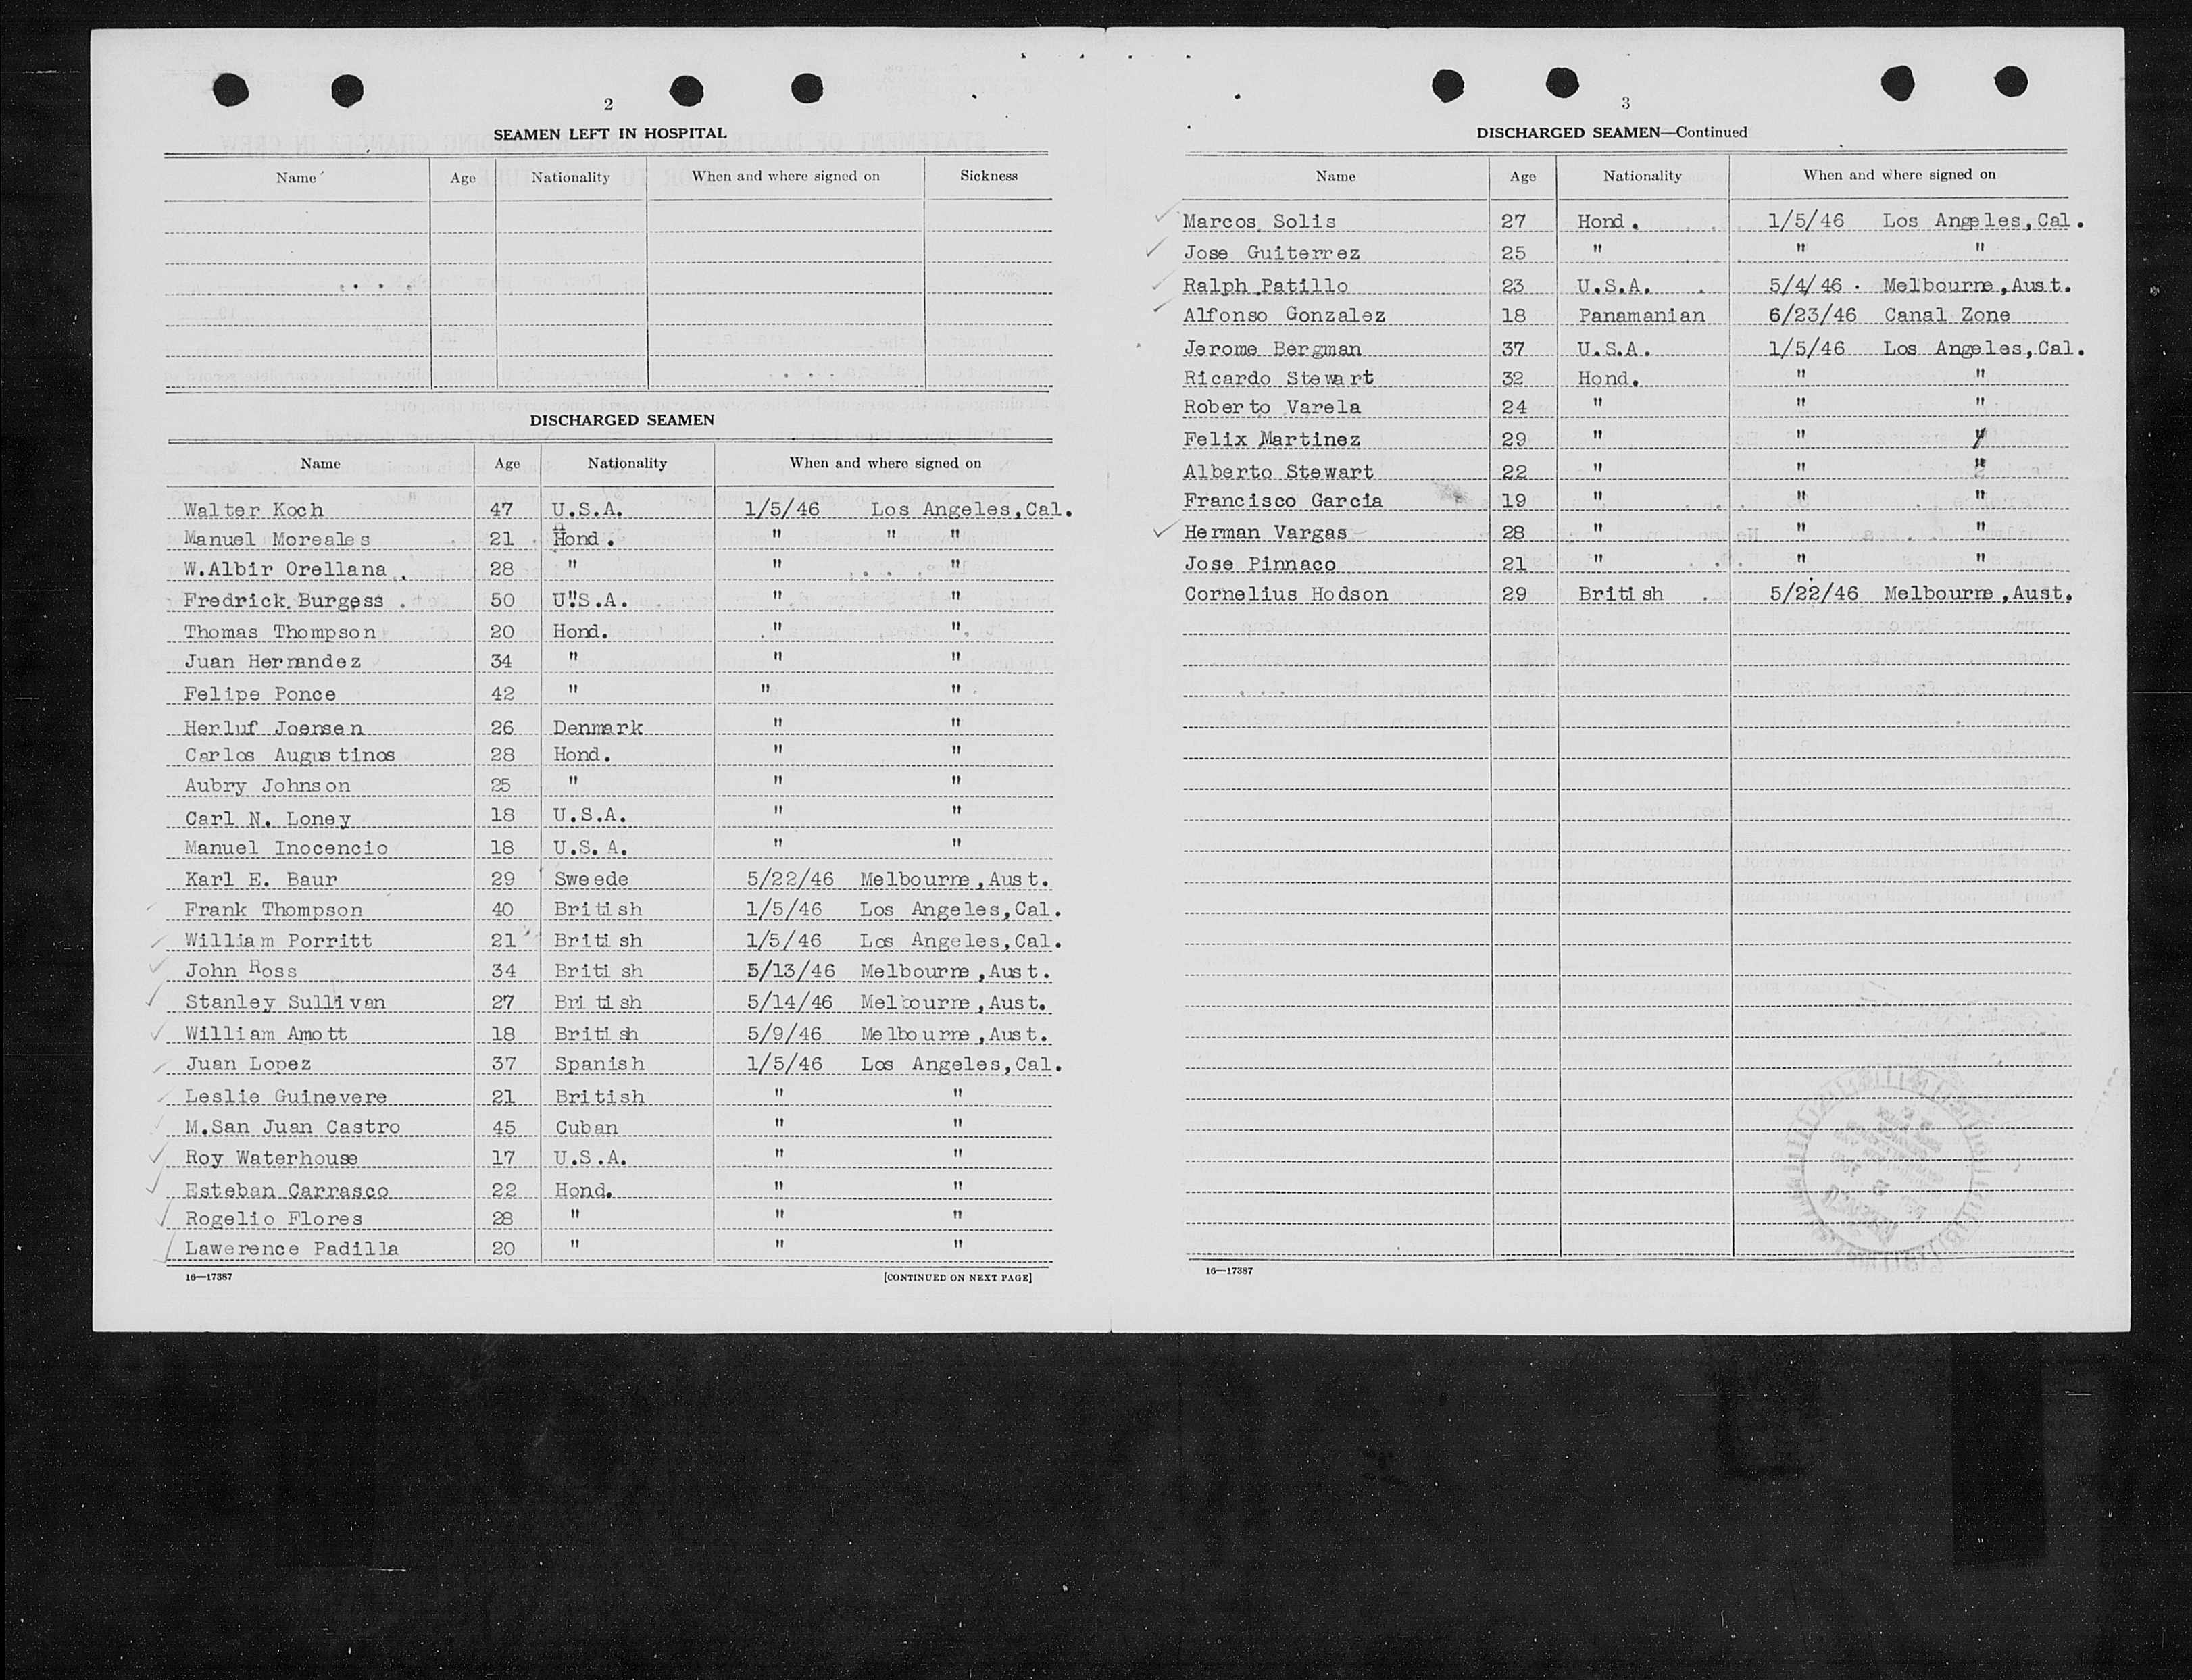 2
SEAMEN LEFT IN HOSPITAL
Name Age Nationality When and where signed on Sickness
DISCHARGED SEAMEN
Name Age Nationality When and where signed on
Walter Koch 47 U.S.A. 1/5/46 Los Angeles,Cal.
Manuel Moreales 21 Hond. " " "
W.Albir Orellana 28 " " "
Fredrick Burgess 50 U.S.A. " "
Thomas Thompson 20 Hond. " "
Juan Hernandez 34 " " "
Felipe Ponce 42 " " "
Herluf Joensen 26 Denmark " "
Carlos Augustinos 28 Hond. " "
Aubry Johnson 25 " " "
Carl N. Loney 18 U.S.A. " "
Manuel Inocencio 18 U.S.A. " "
Karl E. Baur 29 Sweede 5/22/46 Melbourne,Aust.
Frank Thompson 40 British 1/5/46 Los Angeles,Cal.
William Porritt 21 British 1/5/46 Los Angeles,Cal.
John Ross 34 British 5/13/46 Melbourne,Aust.
Stanley Sullivan 27 British 5/14/46 Melbourne,Aust.
William Amott 18 British 5/9/46 Melbourne,Aust.
Juan Lopez 37 Spanish 1/5/46 Los Angeles,Cal.
Leslie Guinevere 21 British " "
M.San Juan Castro 45 Cuban " "
Roy Waterhouse 17 U.S.A. " "
Esteban Carrasco 22 Hond. " "
Rogelio Flores 28 " " "
Lawerence Padilla 20 " " "
16—17387 [CONTINUED ON NEXT PAGE]
3
DISCHARGED SEAMEN—Continued
Name Age Nationality When and where signed on
Marcos Solis 27 Hond. 1/5/46 Los Angeles,Cal.
Jose Guiterrez 25 " " "
Ralph Patillo 23 U.S.A. 5/4/46 Melbourne,Aust.
Alfonso Gonzalez 18 Panamanian 6/23/46 Canal Zone
Jerome Bergman 37 U.S.A. 1/5/46 Los Angeles,Cal.
Ricardo Stewart 32 Hond. " "
Roberto Varela 24 " " "
Felix Martinez 29 " " "
Alberto Stewart 22 " " "
Francisco Garcia 19 " " "
Herman Vargas 28 " " "
Jose Pinnaco 21 " " "
Cornelius Hodson 29 British 5/22/46 Melbourne,Aust.
16—17387